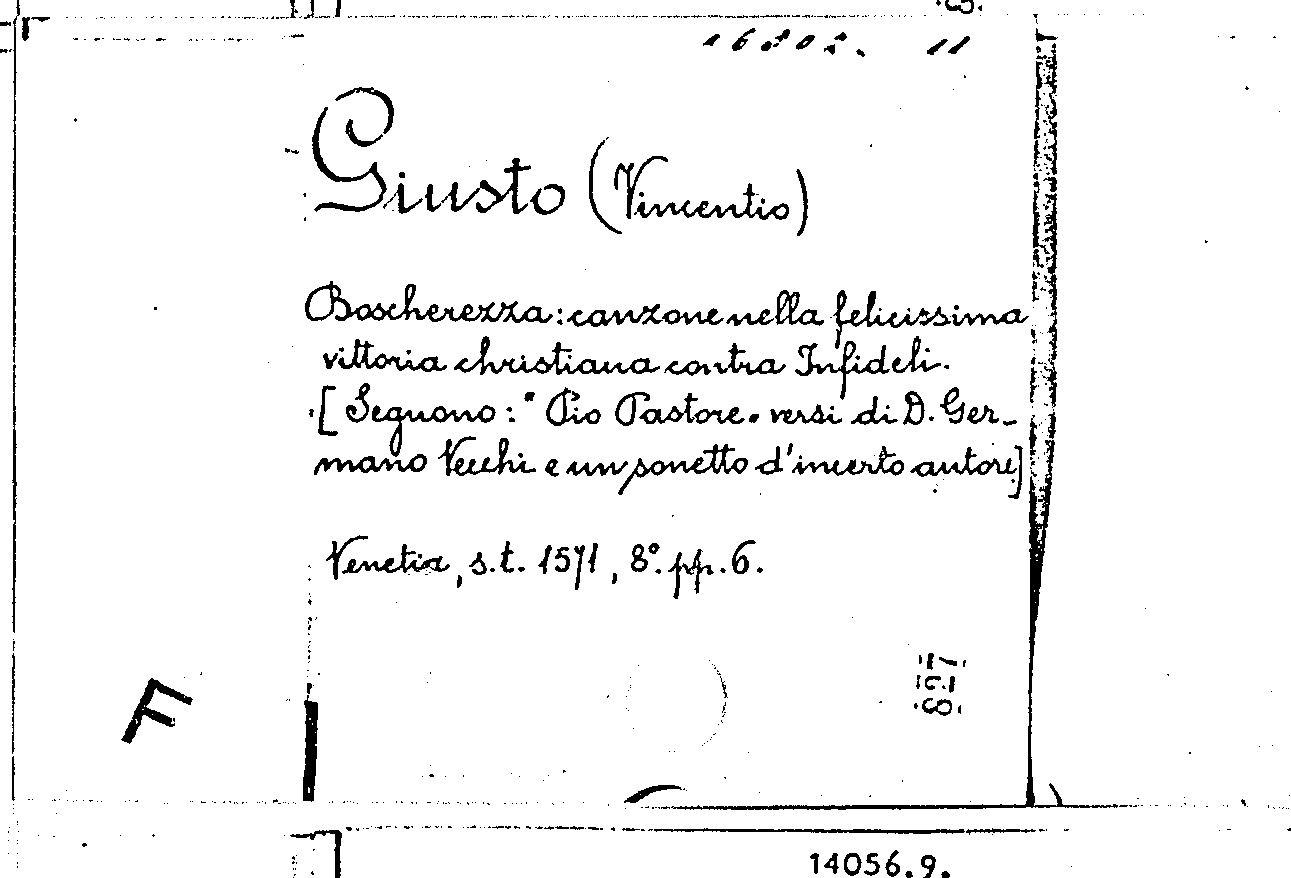 16202. 11
Giusto (Vincentio)
Boscherezza: canzone nella felicissima
vittoria christiana contra Infideli.
[Seguono: "Pio Pastore" versi di D. Ger-
mano Vecchi e un sonetto d'incerto autore]
Venetia, s.t. 1571, 8°. pp. 6.
827
F
14056.9.